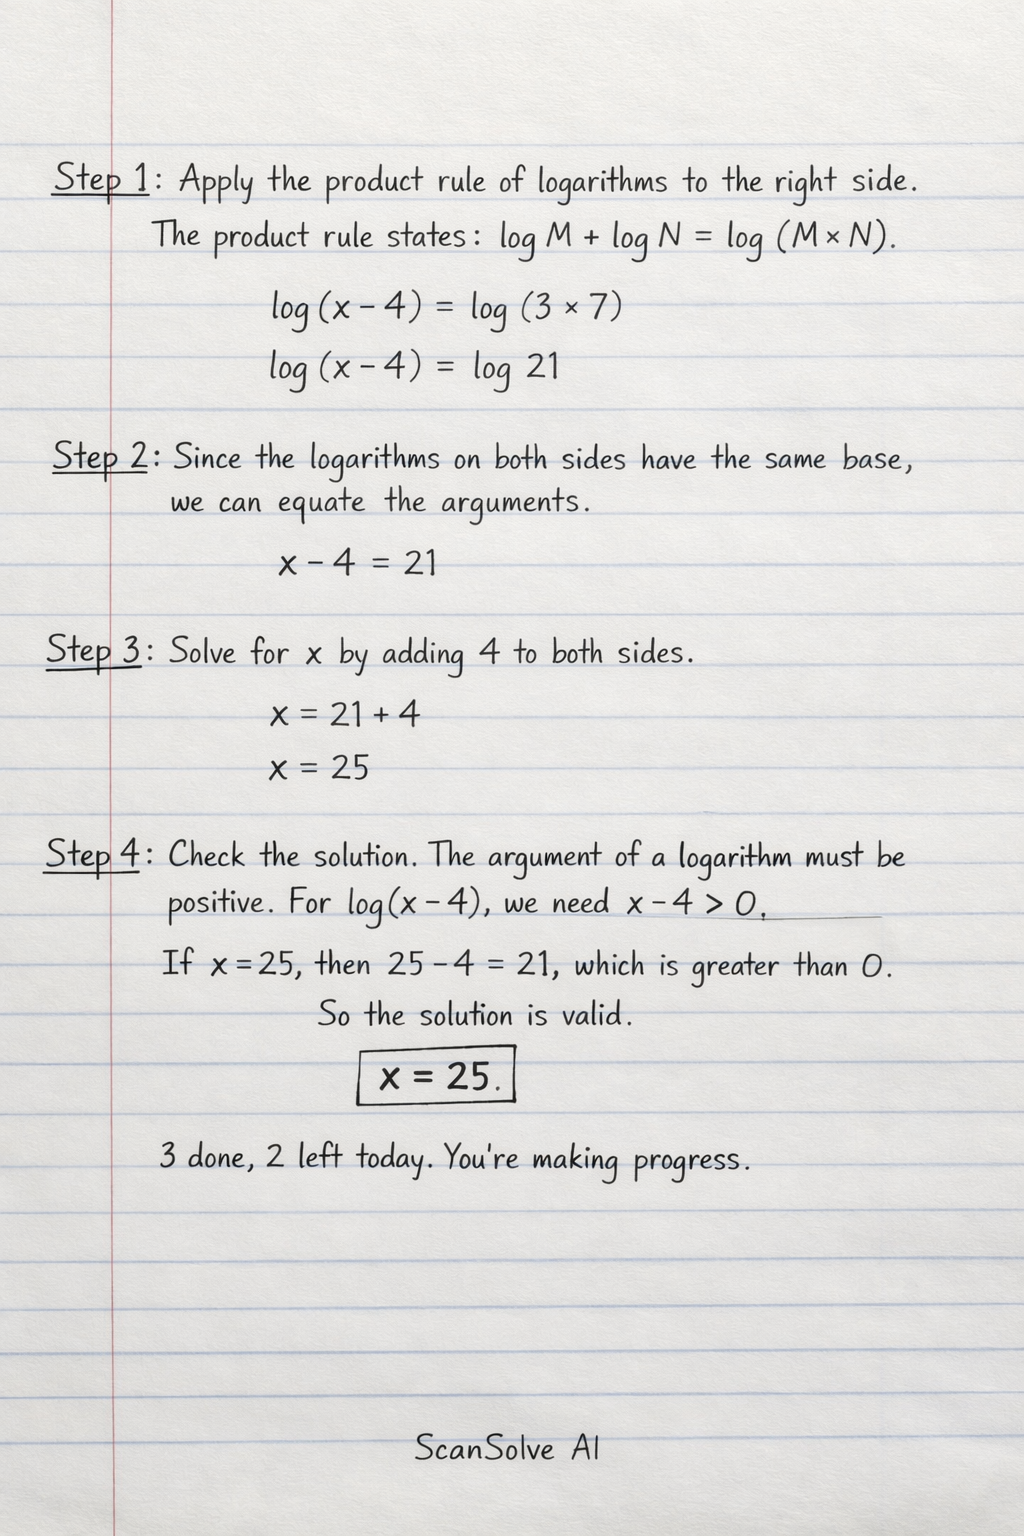 Step 1: Apply the product rule of logarithms to the right side.
The product rule states: log M + log N = log (M × N).
log (x – 4) = log (3 × 7)
log (x – 4) = log 21
Step 2: Since the logarithms on both sides have the same base,
we can equate the arguments.
x – 4 = 21
Step 3: Solve for x by adding 4 to both sides.
x = 21 + 4
x = 25
Step 4: Check the solution. The argument of a logarithm must be
positive. For log(x – 4), we need x – 4 > 0.
If x = 25, then 25 – 4 = 21, which is greater than 0.
So the solution is valid.
x = 25.
3 done, 2 left today. You're making progress.
ScanSolve AI